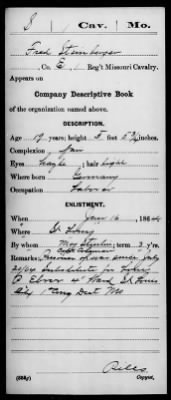 S | Cav. | Mo.
Fred Steinberger
, Co. E, 1 Reg't Missouri Cavalry.
Appears on
Company Descriptive Book
of the organization named above.
DESCRIPTION.
Age 19 years; height 5 feet 5 ¾ inches.
Complexion Fair
Eyes hazle; hair light
Where born Germany
Occupation Laborer
ENLISTMENT.
When July 16, 1864
Where St Louis
By whom; term 3 y'rs.
Remarks: of war since July
20/64 Substitute for
P. 4" Ward St Louis
City 1" Cong Dist Mo
(383g) Copyist.